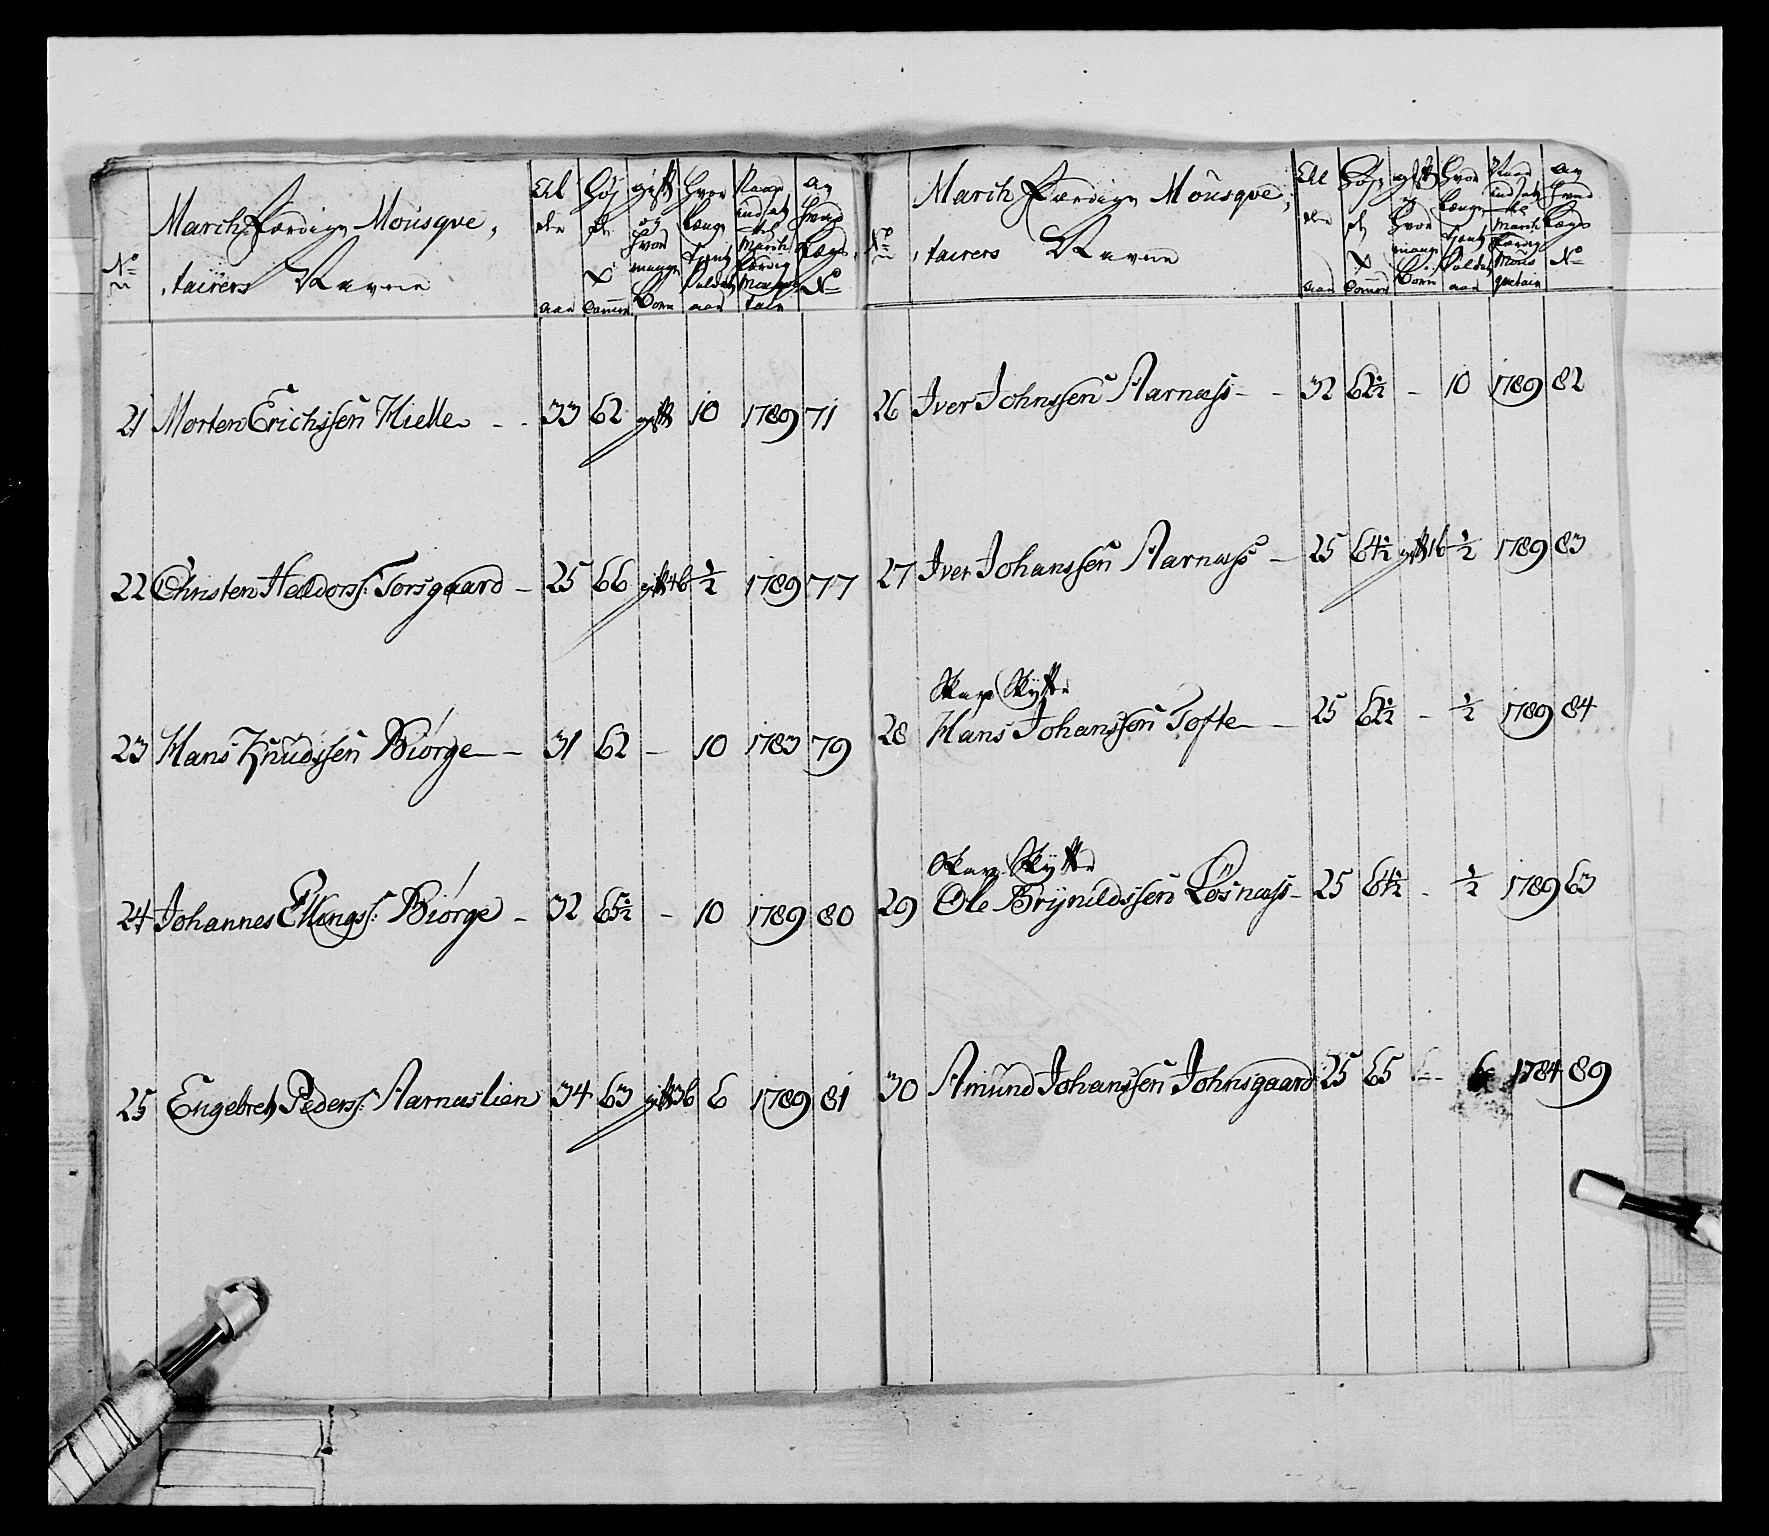 No
March Færdige Mousqve,
,tairers Navne
Al
der
aar
Høj
de
Tommer
gift
og
hvor
mange
Børn
Hvor
længe
tjent
Soldat
aar
Naar
indsat
til
March
færdig
Mousqve
tair
Av
hvad
Lægs
No
21 Morten Erichssen Kielle - - 33 62 gift 10 1789 71
22 Christen Haldorss: Torsgaard - 25 66 gift 1b ½ 1789 77
23 Hans Knudssen Biørge - 31 62 - 10 1783 79
24 Johannes Ellingss: Biørge - 32 65½ - 10 1789 80
25 Engebret Pederss: Aarnæslien 34 63 gift 3b 6 1789 81
No
March Færdige Mousqve,
,tairers Navne
Al
der
aar
Høj
de
Tommer
gift
og
hvor
mange
Børn
Hvor
længe
tjent
Soldat
aar
Naar
indsat
til
March
færdig
Mous
quetair
Av
hvad
Lægs
No
26 Iver Johnssen Aarnæss - - 32 62½ - 10 1789 82
27 Iver Johanssen Aarnæss - 25 64½ gift 1b ½ 1789 83
Skarp Skytte
28 Hans Johanssen Tofte - 25 62½ - ½ 1789 84
Skarp Skytte
29 Ole Brynildssen Løsnæss - 25 64½ - ½ 1789 63
30 Amund Johanssen Johnsgaard 25 65 - 6 1784 89